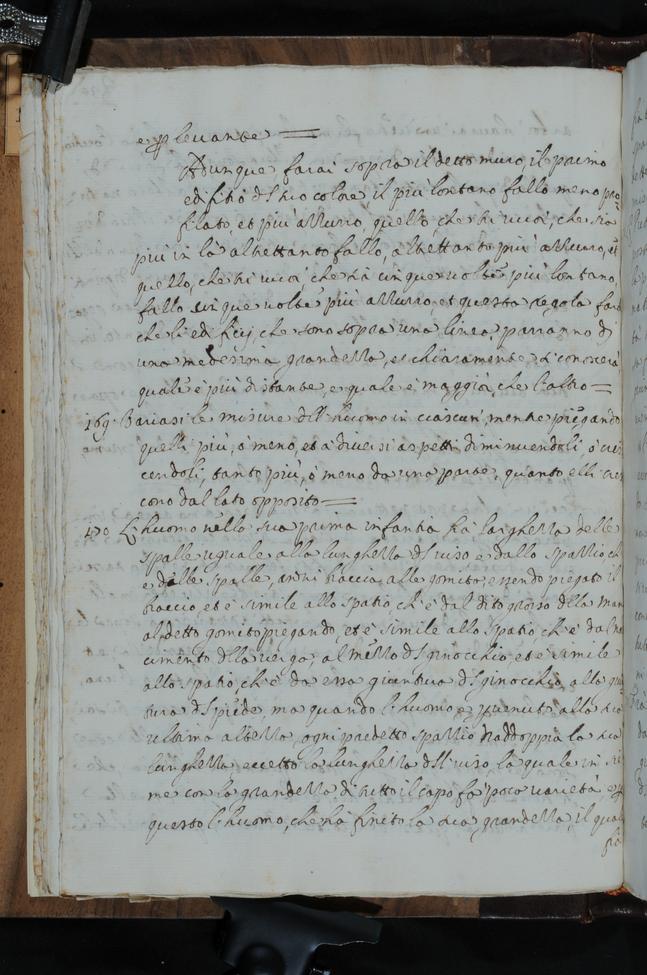 e p levante =
Adunque farai sopra il detto muro il primo
edifitio del suo colore il più lontano fallo meno pro=
filato, et più azurro, quello, che tu vuoi, che sia
più in là altrettanto fallo, altrettanto più azurro, et
quello, che tu vuoi, che sia cinque volte più lontano,
fallo cinque volte più azurro, et questa regola farà
che li edificij, che sono sopra una linea parranno d
una medesima grandezza, et chiaramente si conoscerà
quale è più distante, e quale è maggior, che l'altro =
169. Variasi le misure dell'huomo in ciascun, mentre piegando
quelli più, ò meno, et à diversi aspetti diminuendoli, ò cres
cendoli, tanto più, ò meno da una parte, quanto elli cres
cono dal lato opposito =
170 L'huomo nella sua prima infantia hà larghezza delle
spalle uguale alla lunghezza del viso e dallo spatio, ch
e dalle spalle, alle gomito, essendo piegato il
braccio, et è simile allo spatio, ch'è dal dito grosso della man
al detto gomito piegando, et è simile allo spatio, ch'è dal na
cimento della verga, al mezzo del ginocchio, et è simile
allo spatio, che è da essa giuntura del ginocchio alla giun
tura del piede, ma quando l'huomo è pervenuto alla sua
ultima altezza, ogni predetto spatio raddoppia la sua
lunghezza eccetto la lunghezza del viso, la quale in sie
me con la grandezza di tutto il capo fa poco varietà e p
questo l'huomo, che ha finito la sua grandezza, il qual